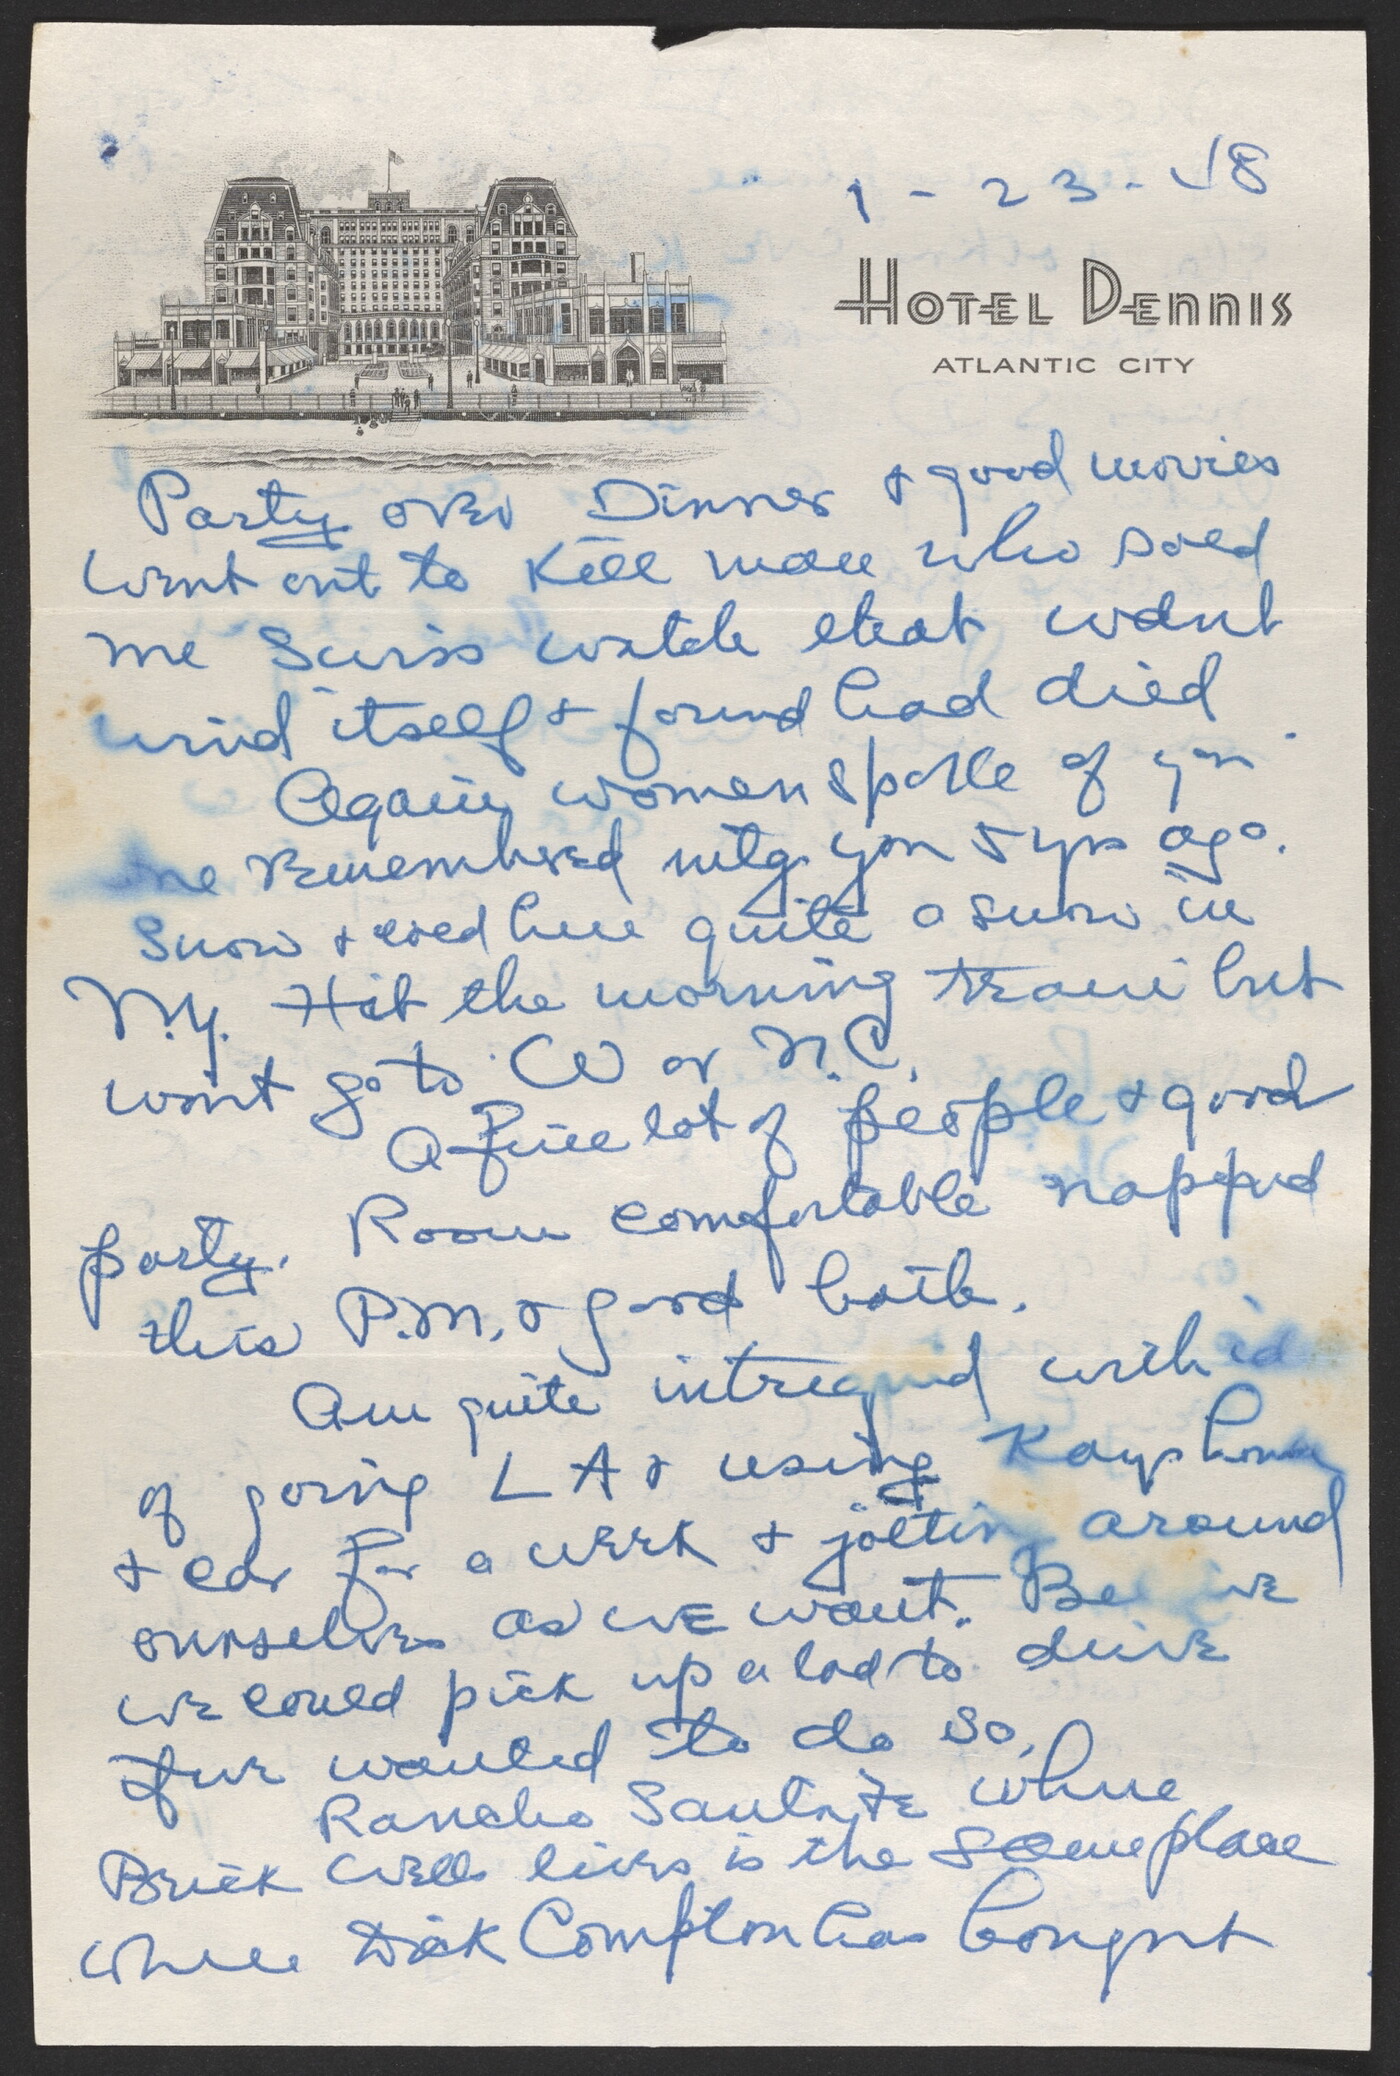 1 - 23 - 58
HOTEL DENNIS
ATLANTIC CITY
Party over Dinner & good movies
Went out to Kill man who sold
me Swiss watch that wdnt
wind itself & found had died
Again women spoke of you
one remembered mtg you 5 yrs ago.
Snow & cold here quite a snow in
N.Y. Hit the morning train but
wont go to CW or N.C.
A fine lot of people & good
party. Room comfortable napped
this P.M. & good bath.
Am quite intrequed with id
of going L A & using Kays home
& car for a week & jolting around
ourselves as we want. Believe
we could pick up a lad to drive
if we wanted to do so.
Rancho Santa Fe where
Brick Wells lives is the same place
where Dick Compton has bought